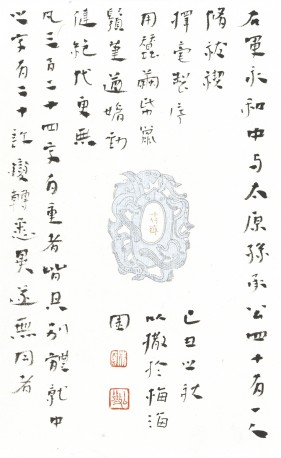 右軍永和中与太原孫承公四十有一人
脩祓禊
擇毫製序
用蠶繭紙鼠
鬚筆遒媚勁
健絕代更無
凡三百二十四字有重者皆具別體就中
之字有二十許變轉悉異遂無同者
己丑之秋
於梅海
園